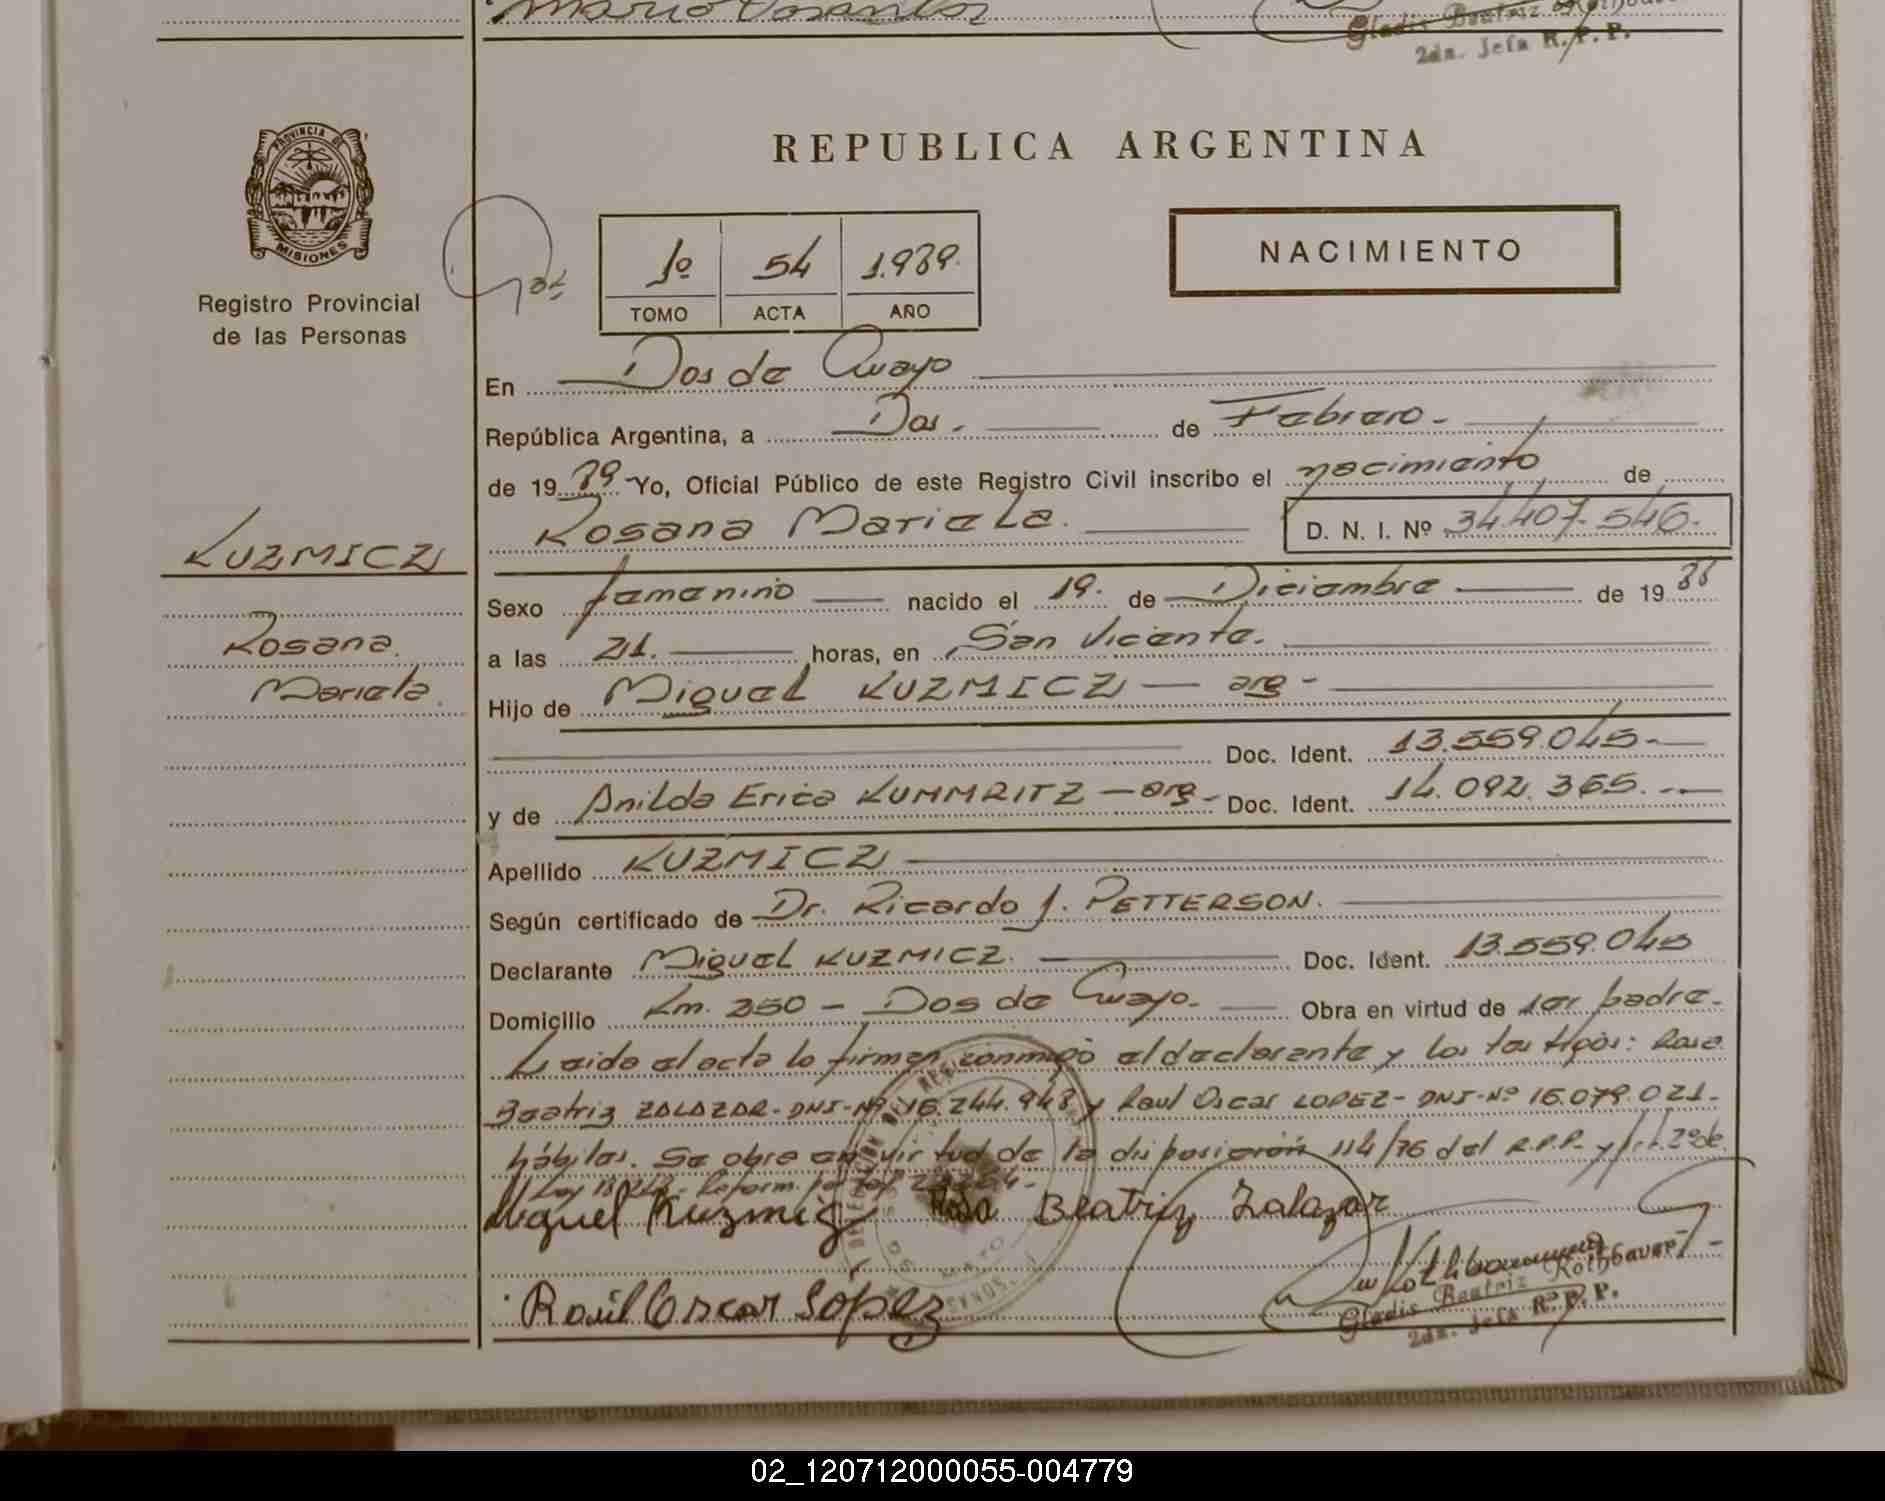 Mario Dosantos
Gladis Beatriz Rothbauer
2da. Jefa R. P. P.
PROVINCIA DE
MISIONES
Registro Provincial
de las Personas
REPUBLICA ARGENTINA
NACIMIENTO
1º 54 1.989.
TOMO ACTA AÑO
En Dos de Mayo
República Argentina, a Dos. de Febrero.-
de 1989 Yo, Oficial Público de este Registro Civil inscribo el nacimiento de
Rosana Mariela. D. N. I. Nº 34.407.546.-
KUZMICZ
Rosana
Mariela.
Sexo femenino nacido el 19. de Diciembre de 1988
a las 21. horas, en San Vicente.
Hijo de Miguel KUZMICZ — arg -
Doc. Ident. 13.559.045.-
y de Anilda Erica KUMMRITZ — arg - Doc. Ident. 14.092.365.-
Apellido KUZMICZ
Según certificado de Dr. Ricardo J. PETTERSON.
Declarante Miguel KUZMICZ. Doc. Ident. 13.559.045
Domicilio Km. 250 - Dos de Mayo.- Obra en virtud de ser padre.-
Leida el acta lo firman conmigo el declarante y los testigos: Rosa
Beatriz ZALAZAR- DNI-Nº 16.244.948 y Raul Oscar LOPEZ- DNI-Nº 16.079.021-
hábiles. Se obra en virtud de la disposición 114/76 del R.P.P. y 2º de
Ley Reform. por
Miguel Kuzmicz Rosa Beatriz Zalazar
Raúl Oscar López
Gladis Beatriz Rothbauer
2da. Jefa R. P. P.
02_120712000055-004779